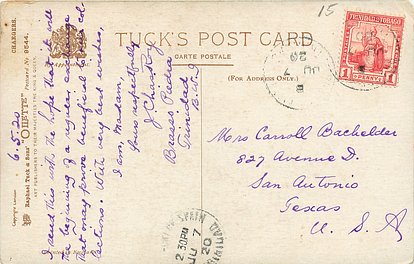 15
TUCK'S POST CARD
CARTE POSTALE
(FOR ADDRESS ONLY.)
TRINIDAD & TOBAGO
1 PENNY 1
CHARGERS.
"OILETTE" Postcard No 9544.
Raphael Tuck & Sons'
ART PUBLISHERS TO THEIR MAJESTIES THE KING & QUEEN
6.5.20
I send this with the hope that it will
the beginning of a regular exchange
that may prove beneficial to our col-
lections. With very best wishes,
I am, Madam,
Yours respectfully
Brasso Piedra
Trinidad
B.W.I
Mrs Carroll Bachelder
827 Avenue D.
San Antonio
Texas
U. S. A
SPAIN
2.30PM
JU 7
20
TRINIDAD